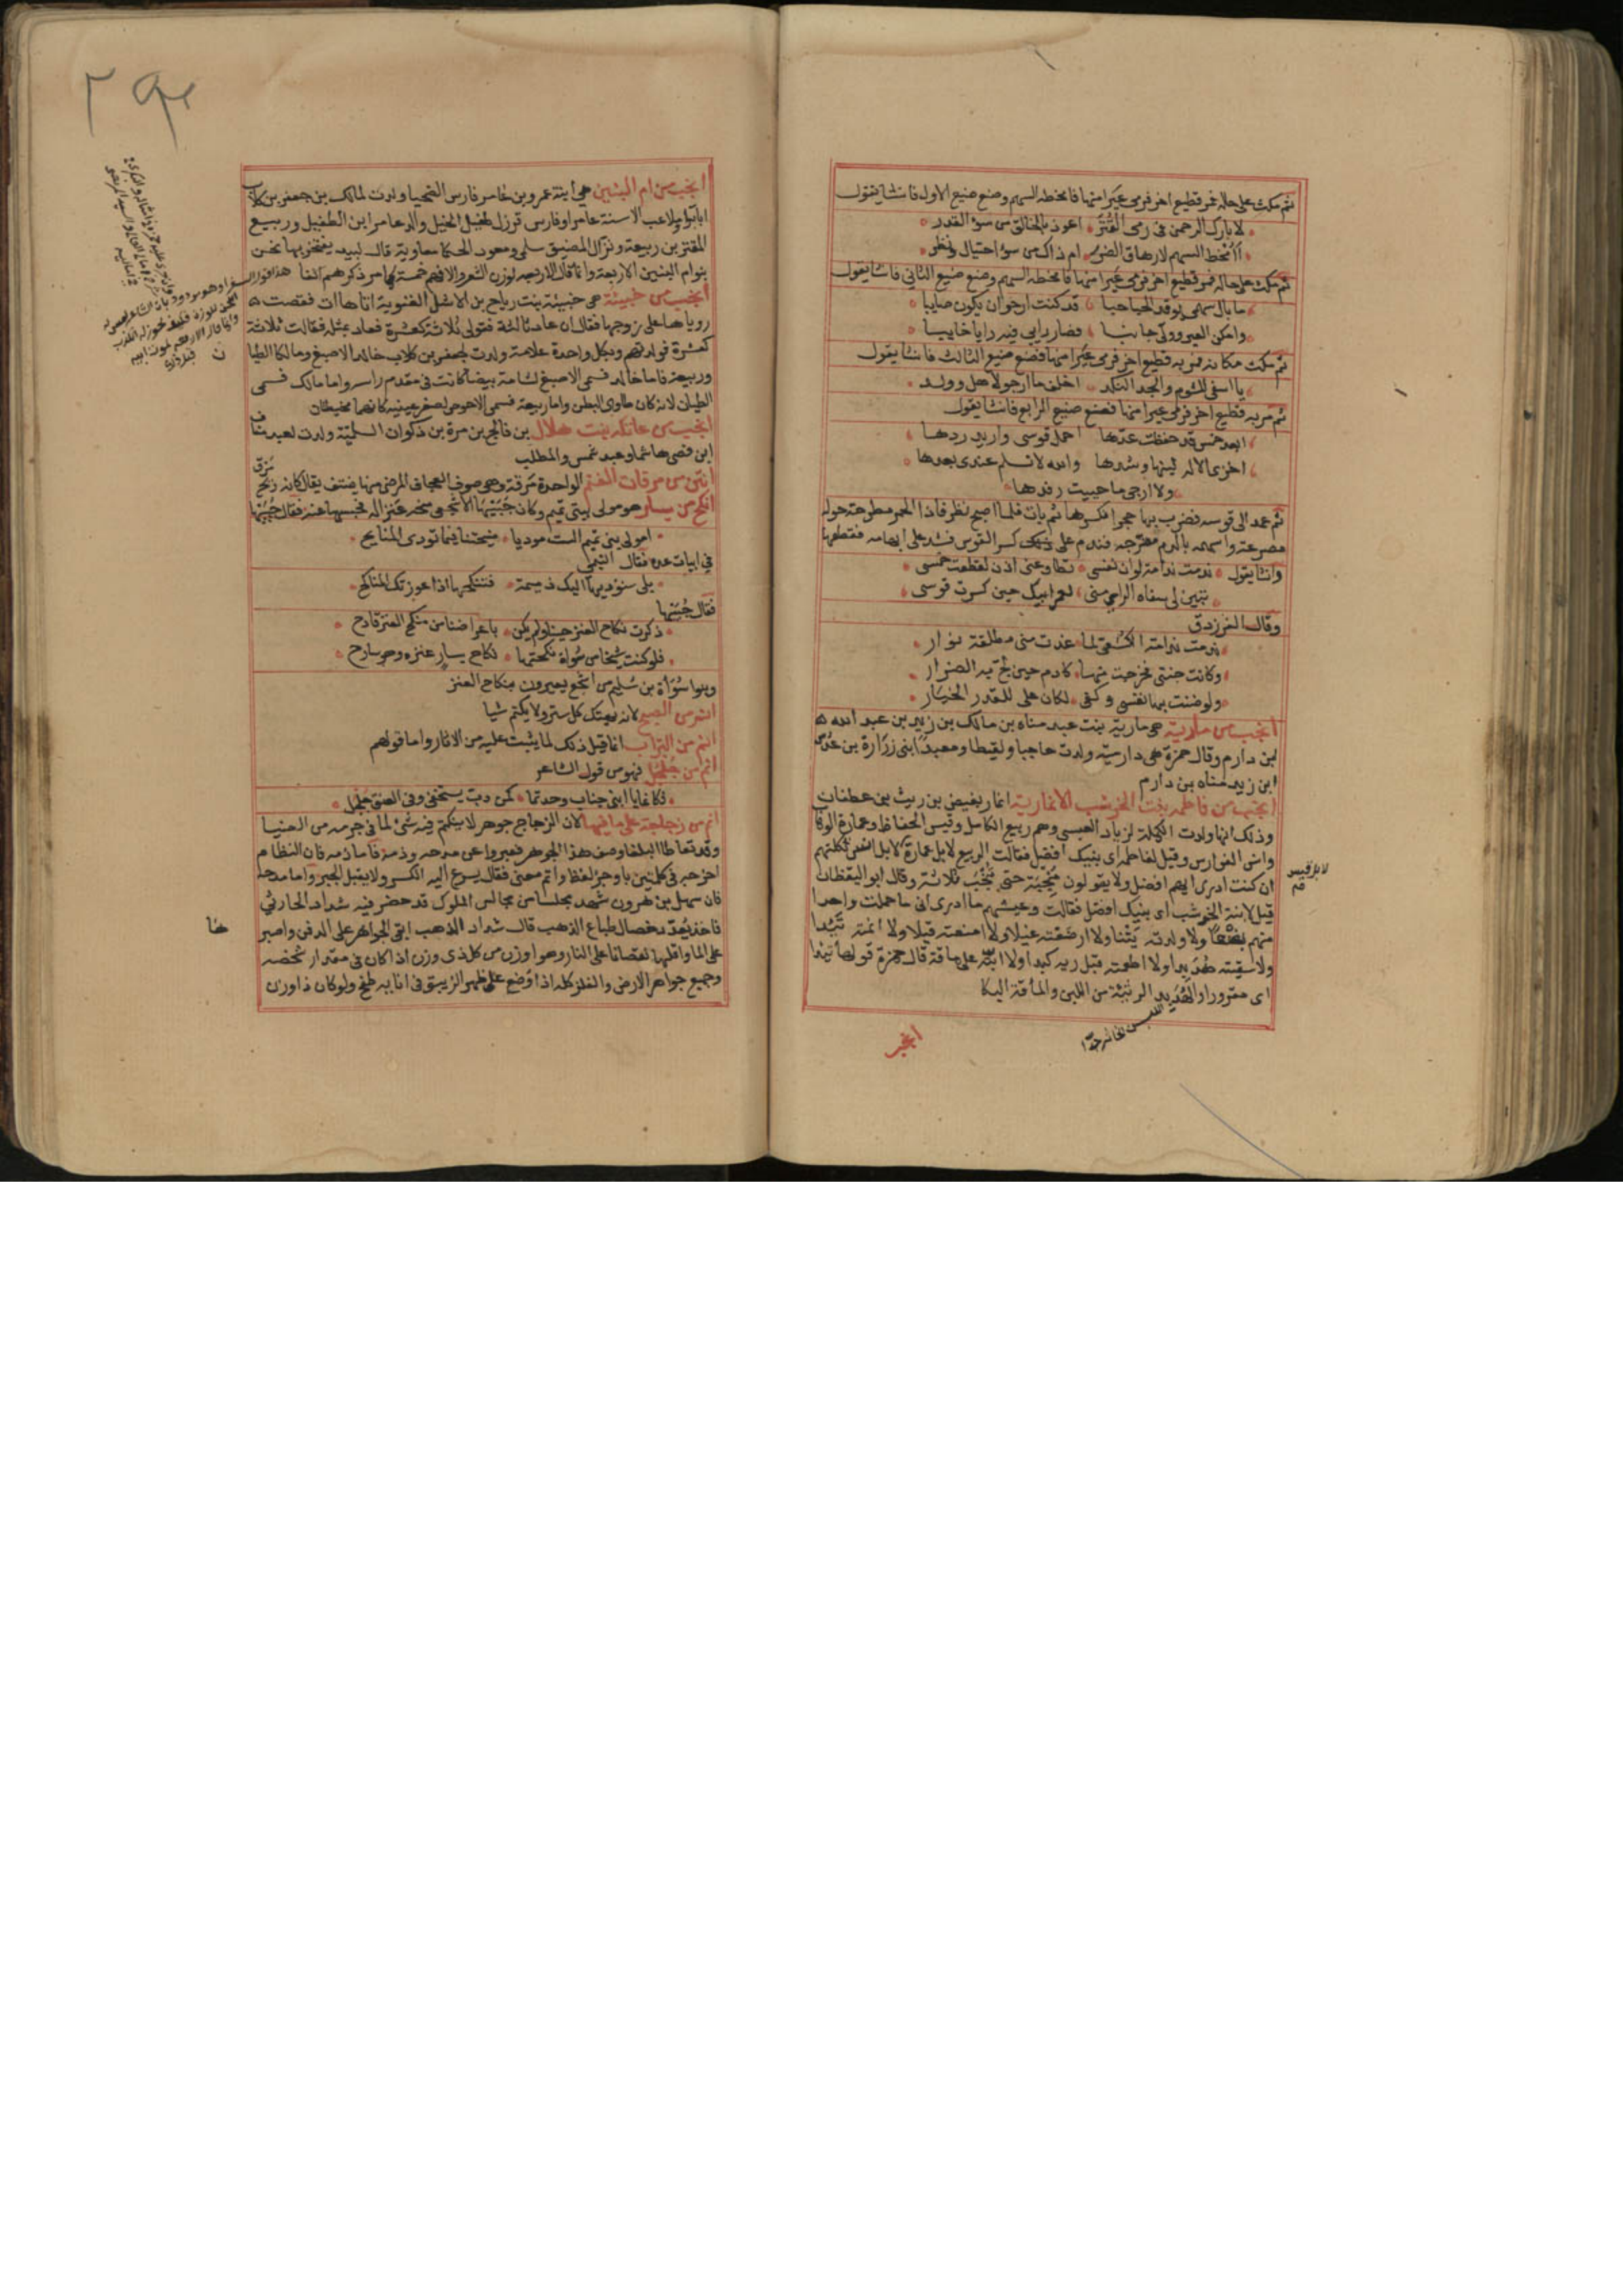 ثم مكث على حاله فمر قطيع اخر فرمى عيرا منها فامخطه السهم وصنع صنيع الاول فانشا يقول
لا بارك الرحمن في رمى القتر اعوذ بالخالق من سوء القدر
أأمخط السهم لارهاق الضرر ام ذاك من سوء احتيال ونظر
ثم مكث على حاله فمر قطيع اخر فرمى عيرا منها فامخطه السهم وصنع صنيع الثاني فانشا يقول
ما بال سهمى يوقد الحباحبا قد كنت ارجو ان يكون صايبا
وامكن العير وولى جانبا فصار رايى فيه رايا خايبا
ثم مكث مكانه فمر به قطيع اخر فرمى عيرا منها فصنع صنيع الثالث فانشا يقول
يا اسفى للشوم والجد النكد اخلف ما ارجو لاهل وولد
ثم مر به قطيع اخر فرمى عيرا منها فصنع صنيع الرابع فانشا يقول
ابعد خمس قد حفظت عدها احمل قوسى واريد ردها
اخزى الاله لينها وشدها والله لا تسلم عندى بعدها
ولا ارجى ما حييت رفدها
ثم عمد الى قوسه فضرب بها حجرا فكسرها ثم بات فلما اصبح نظر فاذا الحمر مطرحة حوله
مصرعة واسهمه بالدم مضرجه فندم على كسر القوس فشد على ابهامه فقطعها
وانشا يقول ندمت ندامة لو ان نفسى تطاوعنى اذن لقطعت خمسى
تبين لى سفاه الراى منى لعمر ابيك حين كسرت قوسى
وقال الفرزدق
ندمت ندامة الكسعى لما غدت منى مطلقة نوار
وكانت جنتى فخرجت منها كادم حين لج به الضرار
ولو ضننت بها نفسى وكفى لكان على للقدر الخيار
انجب من مارية هى مارية بنت عبد مناه بن مالك بن زيد بن عبد الله
بن دارم وقال حمزة هى دارمية ولدت حاجبا ولقيطا ومعبدا ابنى زرارة بن عدس
ابن زيد مناه بن دارم
انجب من فاطمة بنت الخرشب الانمارية انمار بغيض بن ريث بن غطفان
وذلك انها ولدت الكملة لزياد العبسى وهم ربيع الكامل وقيس الحفاظ وعمارة الوهاب
وانس الفوارس وقيل لفاطمة اى بنيك افضل فقالت الربيع لا بل عمارة لا بل انس ثكلتهم
ان كنت ادرى ايهم افضل ولا يقولون منجبة حتى تنجب ثلاثة وقال ابو اليقظان
قيل لابنة الخرشب اى بنيك افضل فقالت وعيشهم ما ادرى انى ما حملت واحدا
منهم تضعا ولا ولدته يتنا ولا ارضعته غيلا ولا منعته قيلا ولا انمته تئدا
ولا سقيته هدبدا ولا اطعمته قبل ريه كبدا ولا ابته على ماقة قال حمزة قولها تئدا
اى مقرورا والهدبد الرثيئة من اللبن والمأقة البكا
اللبن الخاثر جدا
انجب
لا بل قيس
انجب من ام البنين هى ابنة عمرو بن عامر فارس الضحيا ولدت لمالك بن جعفر بن كلاب
ابا براء ملاعب الاسنة عامرا وفارس قرزل طفيل الخيل والد عامر ابن الطفيل وربيع
المقترين ربيعة ونزال المضيق سلمى ومعود الحكما معاوية قال لبيد يفتخر بها نحن
بنو ام البنين الاربعة وانما قال الاربعة لوزن الشعر والا فهم خمسة كما مر ذكرهم انفا
انجب من خبيئة هى خبيئة بنت رياح بن الاشل الغنوية اتاها ات فقصت
روياها على زوجها فقال ان عاد ثالثة فقولى ثلاثة كعشرة فعاد بمثله فقالت ثلاثة
كعشرة فولدتهم وبكل واحدة علامة ولدت لجعفر بن كلاب خالد الاصبغ ومالكا الطيا
وربيعة فاما خالد فسمى الاصبغ لشامة بيضا كانت فى مقدم راسه واما مالك فسمى
الطيان لانه كان طاوى البطن واما ربيعة فسمى الاحوص لصغر عينيه كانهما مخيطتان
انجب من عاتكة بنت هلال بن فالج بن مرة بن ذكوان السلمية ولدت لعبد مناف
ابن قصى هاشما وعبد شمس والمطلب
انتن من مرقات الغنم الواحدة مرقة وهى صوف العجاف المرضى منها ينتف يقال كانه ريح مرق
انكح من يسار هو مولى لبنى تميم وكان جبيها الاشجعى منحه عنزا له فحبسها عنه فقال جبيها
امولى بنى تميم الست موديا منيحتنا فيما تودى المنايح
في ابيات عدة فقال التيمى
بلى سنوديها اليك ذميمة فتنكحها اذا عوزتك المناكح
فقال جبيها
ذكرت نكاح العنز حينا ولم يكن باعراضنا من منكح العنز قادح
فلو كنت شيخا من سواة نكحتها نكاح يسار عنزه وهو سارح
وبنوا سوأة بن سليم من اشجع يعيرون بنكاح العنز
انم من الصبح لانه يهتك كل ستر ولا يكتم شيا
انم من التراب انما قيل ذلك لما يثبت عليه من الاثار واما قولهم
انم من جلجل فهو من قول الشاعر
فانكما يا ابنى جناب وجدتما كمن دب يستخفى وفى العنق جلجل
انم من زجاجة على ما فيها لان الزجاج جوهر لا ينكتم فيه شئ لما فى جرمه من الضيا
وقد تعاطا البلغا وصف هذا الجوهر فعبروا عن مدحه وذمه فاما ذمه فان النظام
اخرجه فى كلمتين باوجز لفظ واتم معنى فقال يسرع اليه الكسر ولا يقبل الجبر واما مدحه
فان سهل بن هرون شهد مجلسا من مجالس الملوك قد حضر فيه شداد الحارثى
فاخذ يعد خصال طباع الذهب قال شداد الذهب ابقى الجواهر على الدفن واصبر
على الما واقلها نقصانا على النار وهو اوزن من كل ذى وزن اذا كان فى مقدار شخصه
وجميع جواهر الارض والفلز كله اذا وضع على ظهر الزيبق فى انايه طفح ولو كان ذا وزن